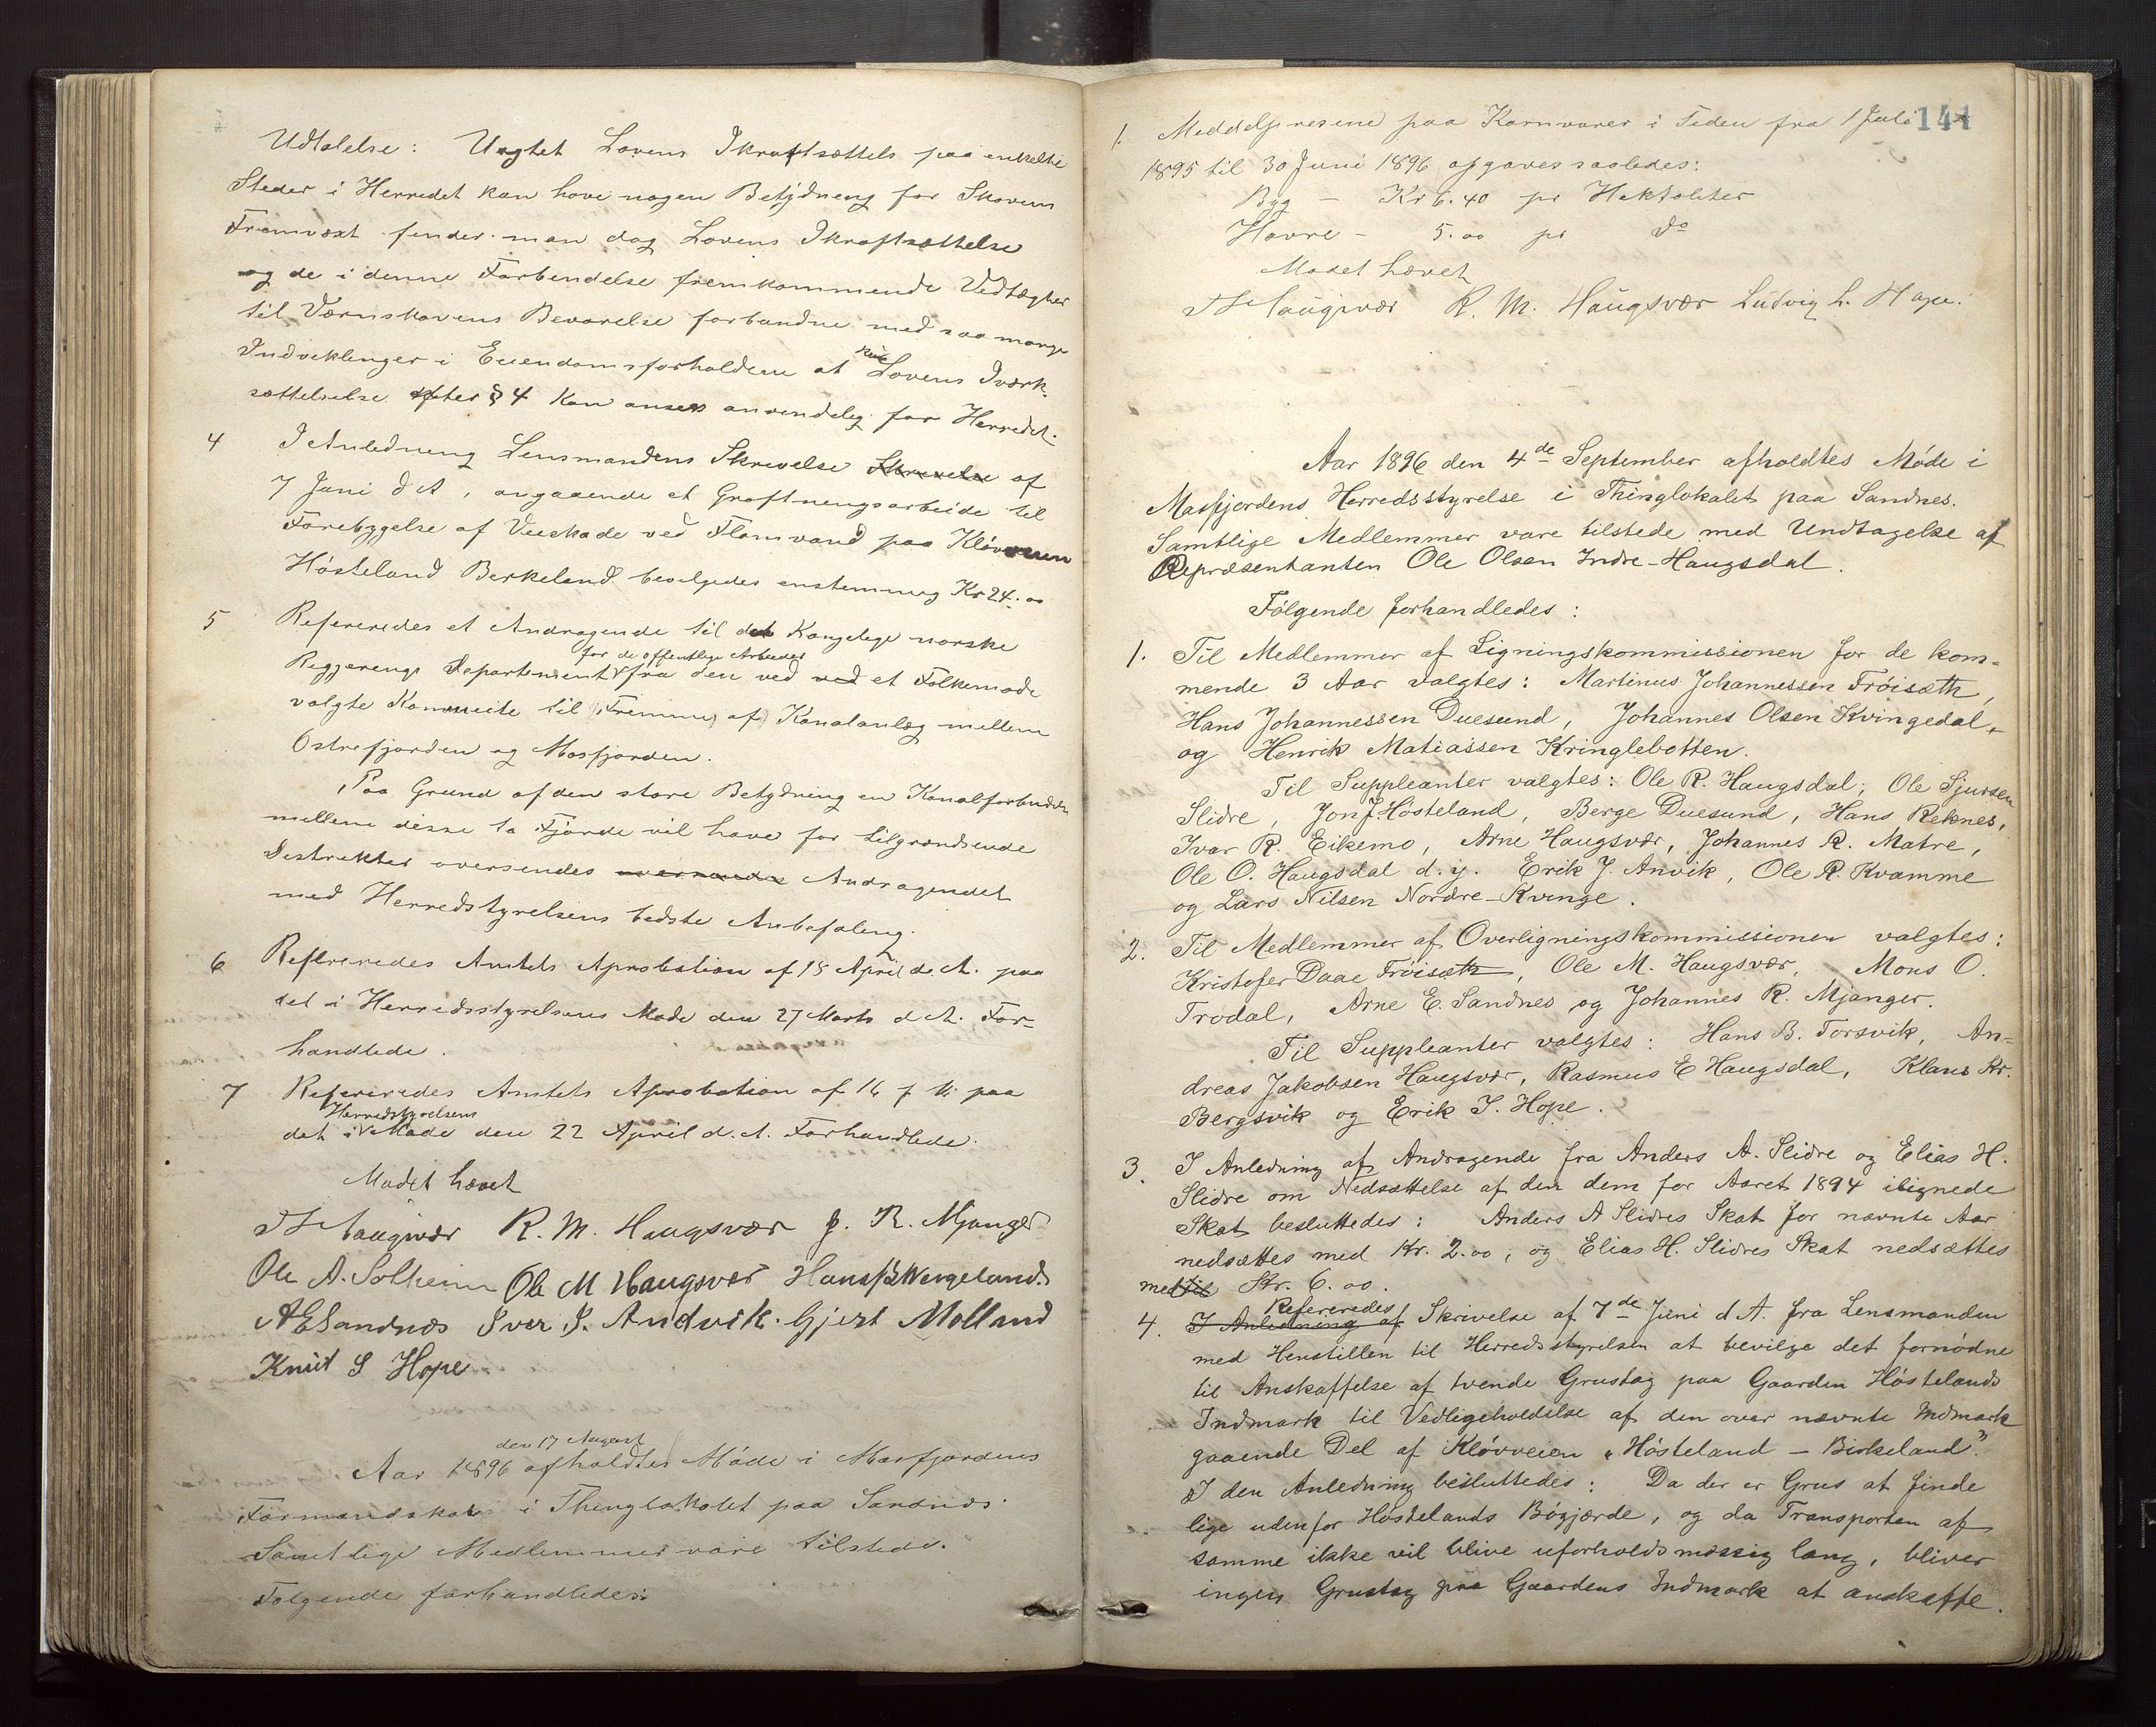 Udtalelse: Uagtet Lovens Ikraftsættels paa enkelte
Steder i Herredet kan have nogen Betydneng for Skovens
Fremvæxt finder man dog Lovens Ikraftsættelse
og de i denne Forbendelse fremkommende Vedtægter
til Værnskovens Bevarelse forbundne med saa mange
Indveklinger i Eiendomsforholdene at Lovens Iværk-
sættelselse efter § 4 kan ansees anvendeleg for Herredet.
4 I Anledneng Lensmandens Skrevelse Skrevelse af
7 Juni d A, angaaende et Grøftnengsarbeide til
Forebygelse af Veiskade ved Flomvand paa Kløvveien
Høsteland Berkeland bevelgedes enstemmeg Kr 24.00
5 Refereredes et Andragende til det Kongelege norske
Reggerengs Departement for de offentlige Arbeider fra den ved ved et Folkemøde
valgte Kommeite til Fremme af Kanalanlæg mellem
Ostrefjorden og Masfjorden.
Paa Grund af den store Betydning en Kanalforbindelse
mellem disse to Fjorde vil have for tilgrændsende
Destrekter oversendes oversendes Andragendet
med Herredstyrelsens bedste Anbefaleng.
6 Refereredes Amtets Aprobation af 18 April d. A. paa
det i Herredsstyrelsens Møde den 27 Marts d A. For-
handlede.
7 Refereredes Amtets Aprobation af 16 f. M. paa
det i Herredstyrelsens Møde den 22 April d. A. Forhandlede.
Mødet hævet
Haugsvær R. M. Haugsvær J. R. Mjanger
Ole A. Solheim Ole M Haugsvær Hans Wergeland.
A E Sandnæs Iver J. Andvik. Gjert Molland
Knut S Hope
Aar 1896 den 17 August afholdtes Møde i Masfjordens
Formandskab i Thenglokalet paa Sandnæs.
Samtlege Medlemmer vare tilstede.
Følgende forhandledes:
141
1. Meddelpresene paa Kornvarer i Teden fra 1 Juli
1895 til 30 Juni 1896 opgaves saaledes:
Byg – Kr 6.40 pr Hektoliter
Havre – 5.00 pr do
Mødet hævet
Haugsvær R. M. Haugsvær Ludvig L. Hope.
Aar 1896 den 4de September afholdtes Møde i
Masfjordens Herredsstyrelse i Thinglokalet paa Sandnes.
Samtlige Medlemmer vare tilstede med Undtagelse af
Repræsentanten Ole Olsen Indre-Haugsdal.
Følgende forhandledes:
1. Til Medlemmer af Ligningskommissionen for de kom-
mende 3 Aar valgtes: Martinus Johannessen Frøisæth,
Hans Johannessen Duesund, Johannes Olsen Kvingedal,
og Henrik Matiassen Kringlebotten.
Til Suppleanter valgtes: Ole R. Haugsdal, Ole Sjursen
Slidre, Jon J. Høsteland, Berge Duesund, Hans Reknes,
Ivar R. Eikemo, Arne Haugsvær, Johannes R. Matre,
Ole O. Haugsdal d. y. Erik J. Anvik, Ole R. Kvamme
og Lars Nilsen Nordre-Kvinge.
2. Til Medlemmer af Overligningskommissionen valgtes:
Kristofer Daae Frøisæth, Ole M. Haugsvær, Mons O.
Trodal, Arne E. Sandnes og Johannes R. Mjanger.
Til Suppleanter valgtes: Hans B. Torsvik, An-
dreas Jakobsen Haugsvær, Rasmus E Haugsdal, Klaus Kr.
Bergsvik og Erik I. Hope.
3. I Anledning af Andragende fra Anders A. Slidre og Elias H.
Slidre om Nedsættelse af den dem for Aaret 1894 ilignede
Skat besluttedes: Anders A Slidres Skat for nævnte Aar
nedsættes med Kr. 2.00, og Elias H. Slidres Skat nedsættes
med til Kr. 6.00.
4. I Anledning af Refereredes Skrivelse af 7de Juni d A. fra Lensmanden
med Henstillen til Herredsstyrelsen at bevilge det fornødne
til Anskaffelse af tvende Grustag paa Gaarden Høstelands
Indmark til Vedligeholdelse af den over nævnte Indmark
gaaende Del af Kløvveien „Høsteland – Birkeland”.
I den Anledning besluttedes: Da der er Grus at finde
lige udenfor Høstelands Bøgjærde, og da Transporten af
samme ikke vil blive uforholdsmæssig lang, bliver
ingen Grustag paa Gaardens Indmark at anskaffe.